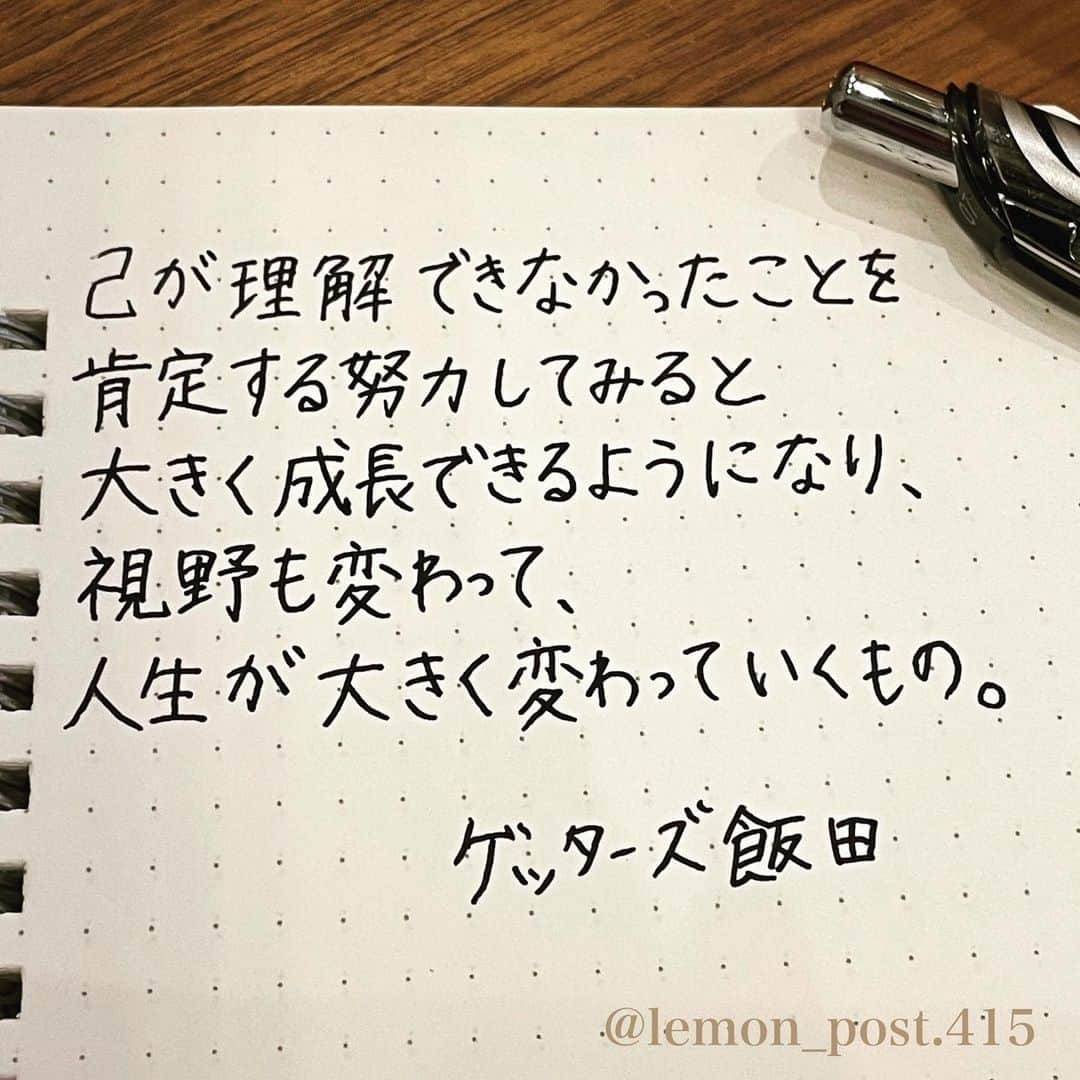 己が理解できなかったことを
肯定する努力してみると
大きく成長できるようになり、
視野も変わって、
人生が大きく変わっていくもの。
ゲッターズ飯田
@lemon_post.415